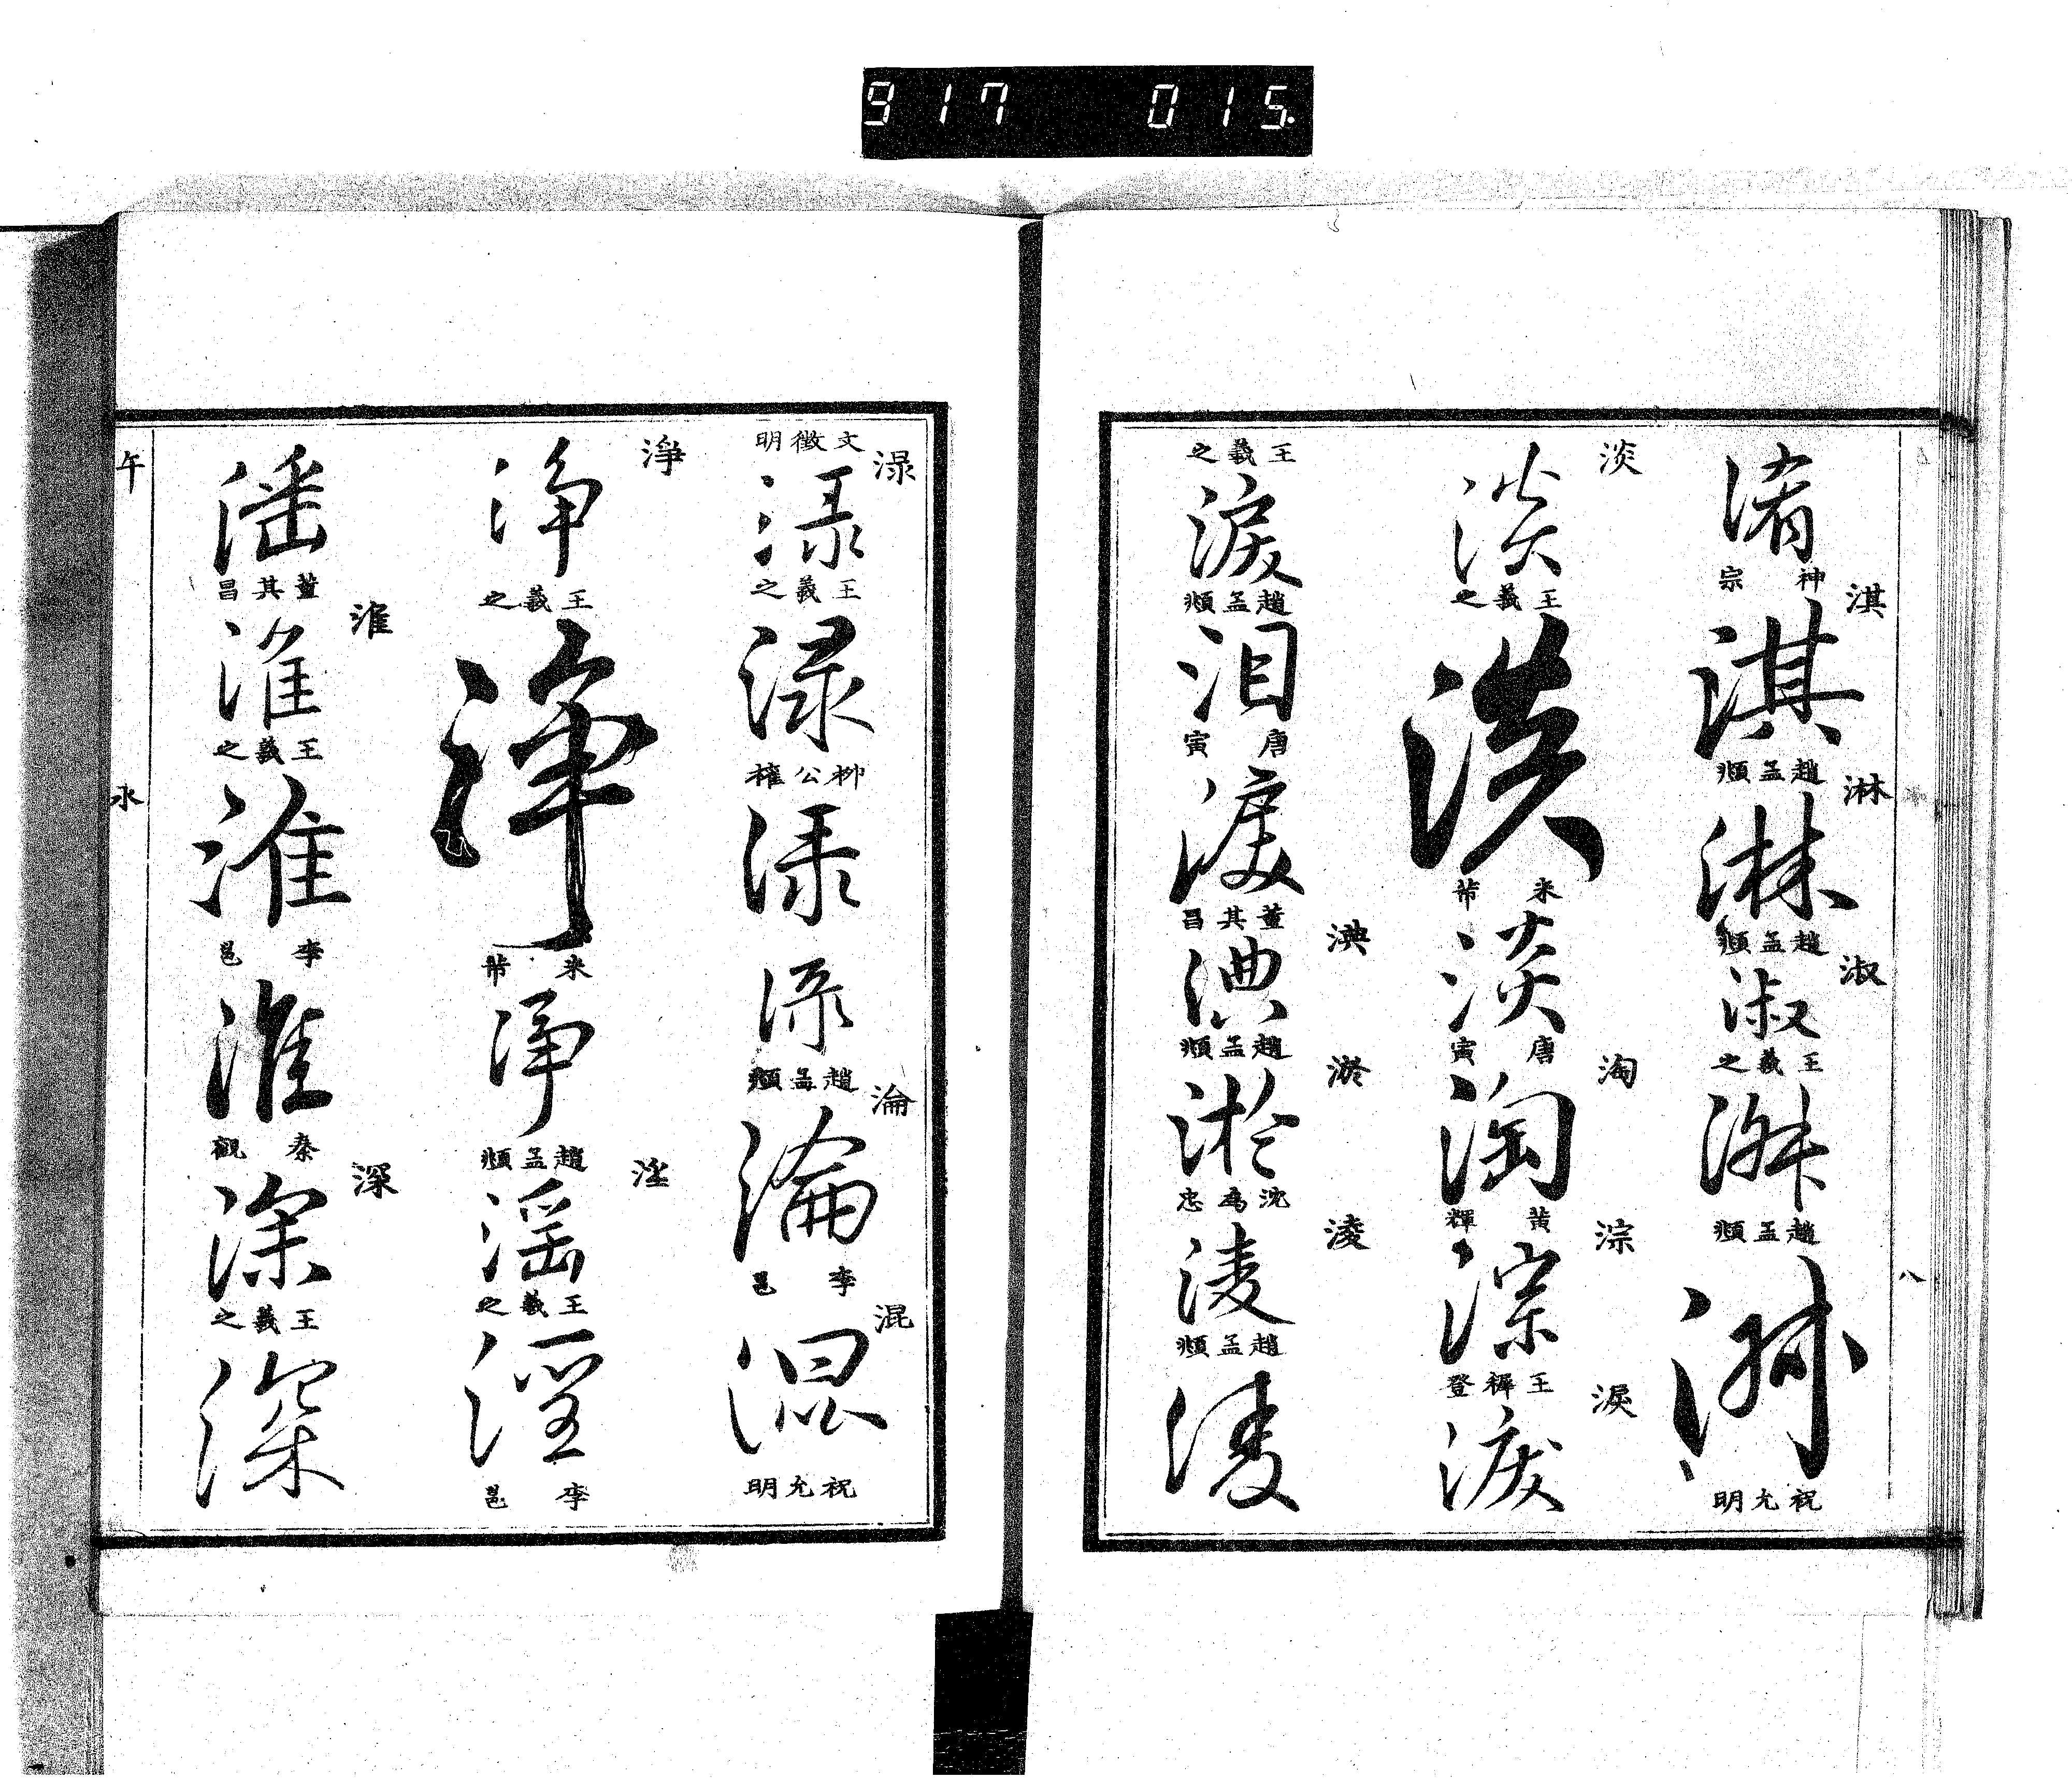 917 015
淆
神宗
淇
淇
趙孟頫
淋
淋
趙孟頫
淑
淑
王羲之
趙孟頫
祝允明
淡
淡
王羲之
淡
米芾
淡
唐寅
淘
淘
黄輝
淙
淙
王穉登
淚
淚
王羲之
淚
趙孟頫
泪
唐寅
淚
董其昌
淟
淟
趙孟頫
淤
淤
沈為忠
淩
淩
趙孟頫
淩
八
渌
文徵明
渌
王羲之
渌
柳公權
渌
渌
趙孟頫
淪
淪
李邕
混
混
祝允明
淨
淨
王羲之
淨
米芾
淨
趙孟頫
淫
淫
王羲之
淫
李邕
董其昌
淮
淮
王羲之
淮
李邕
淮
秦觀
深
深
王羲之
深
午
水